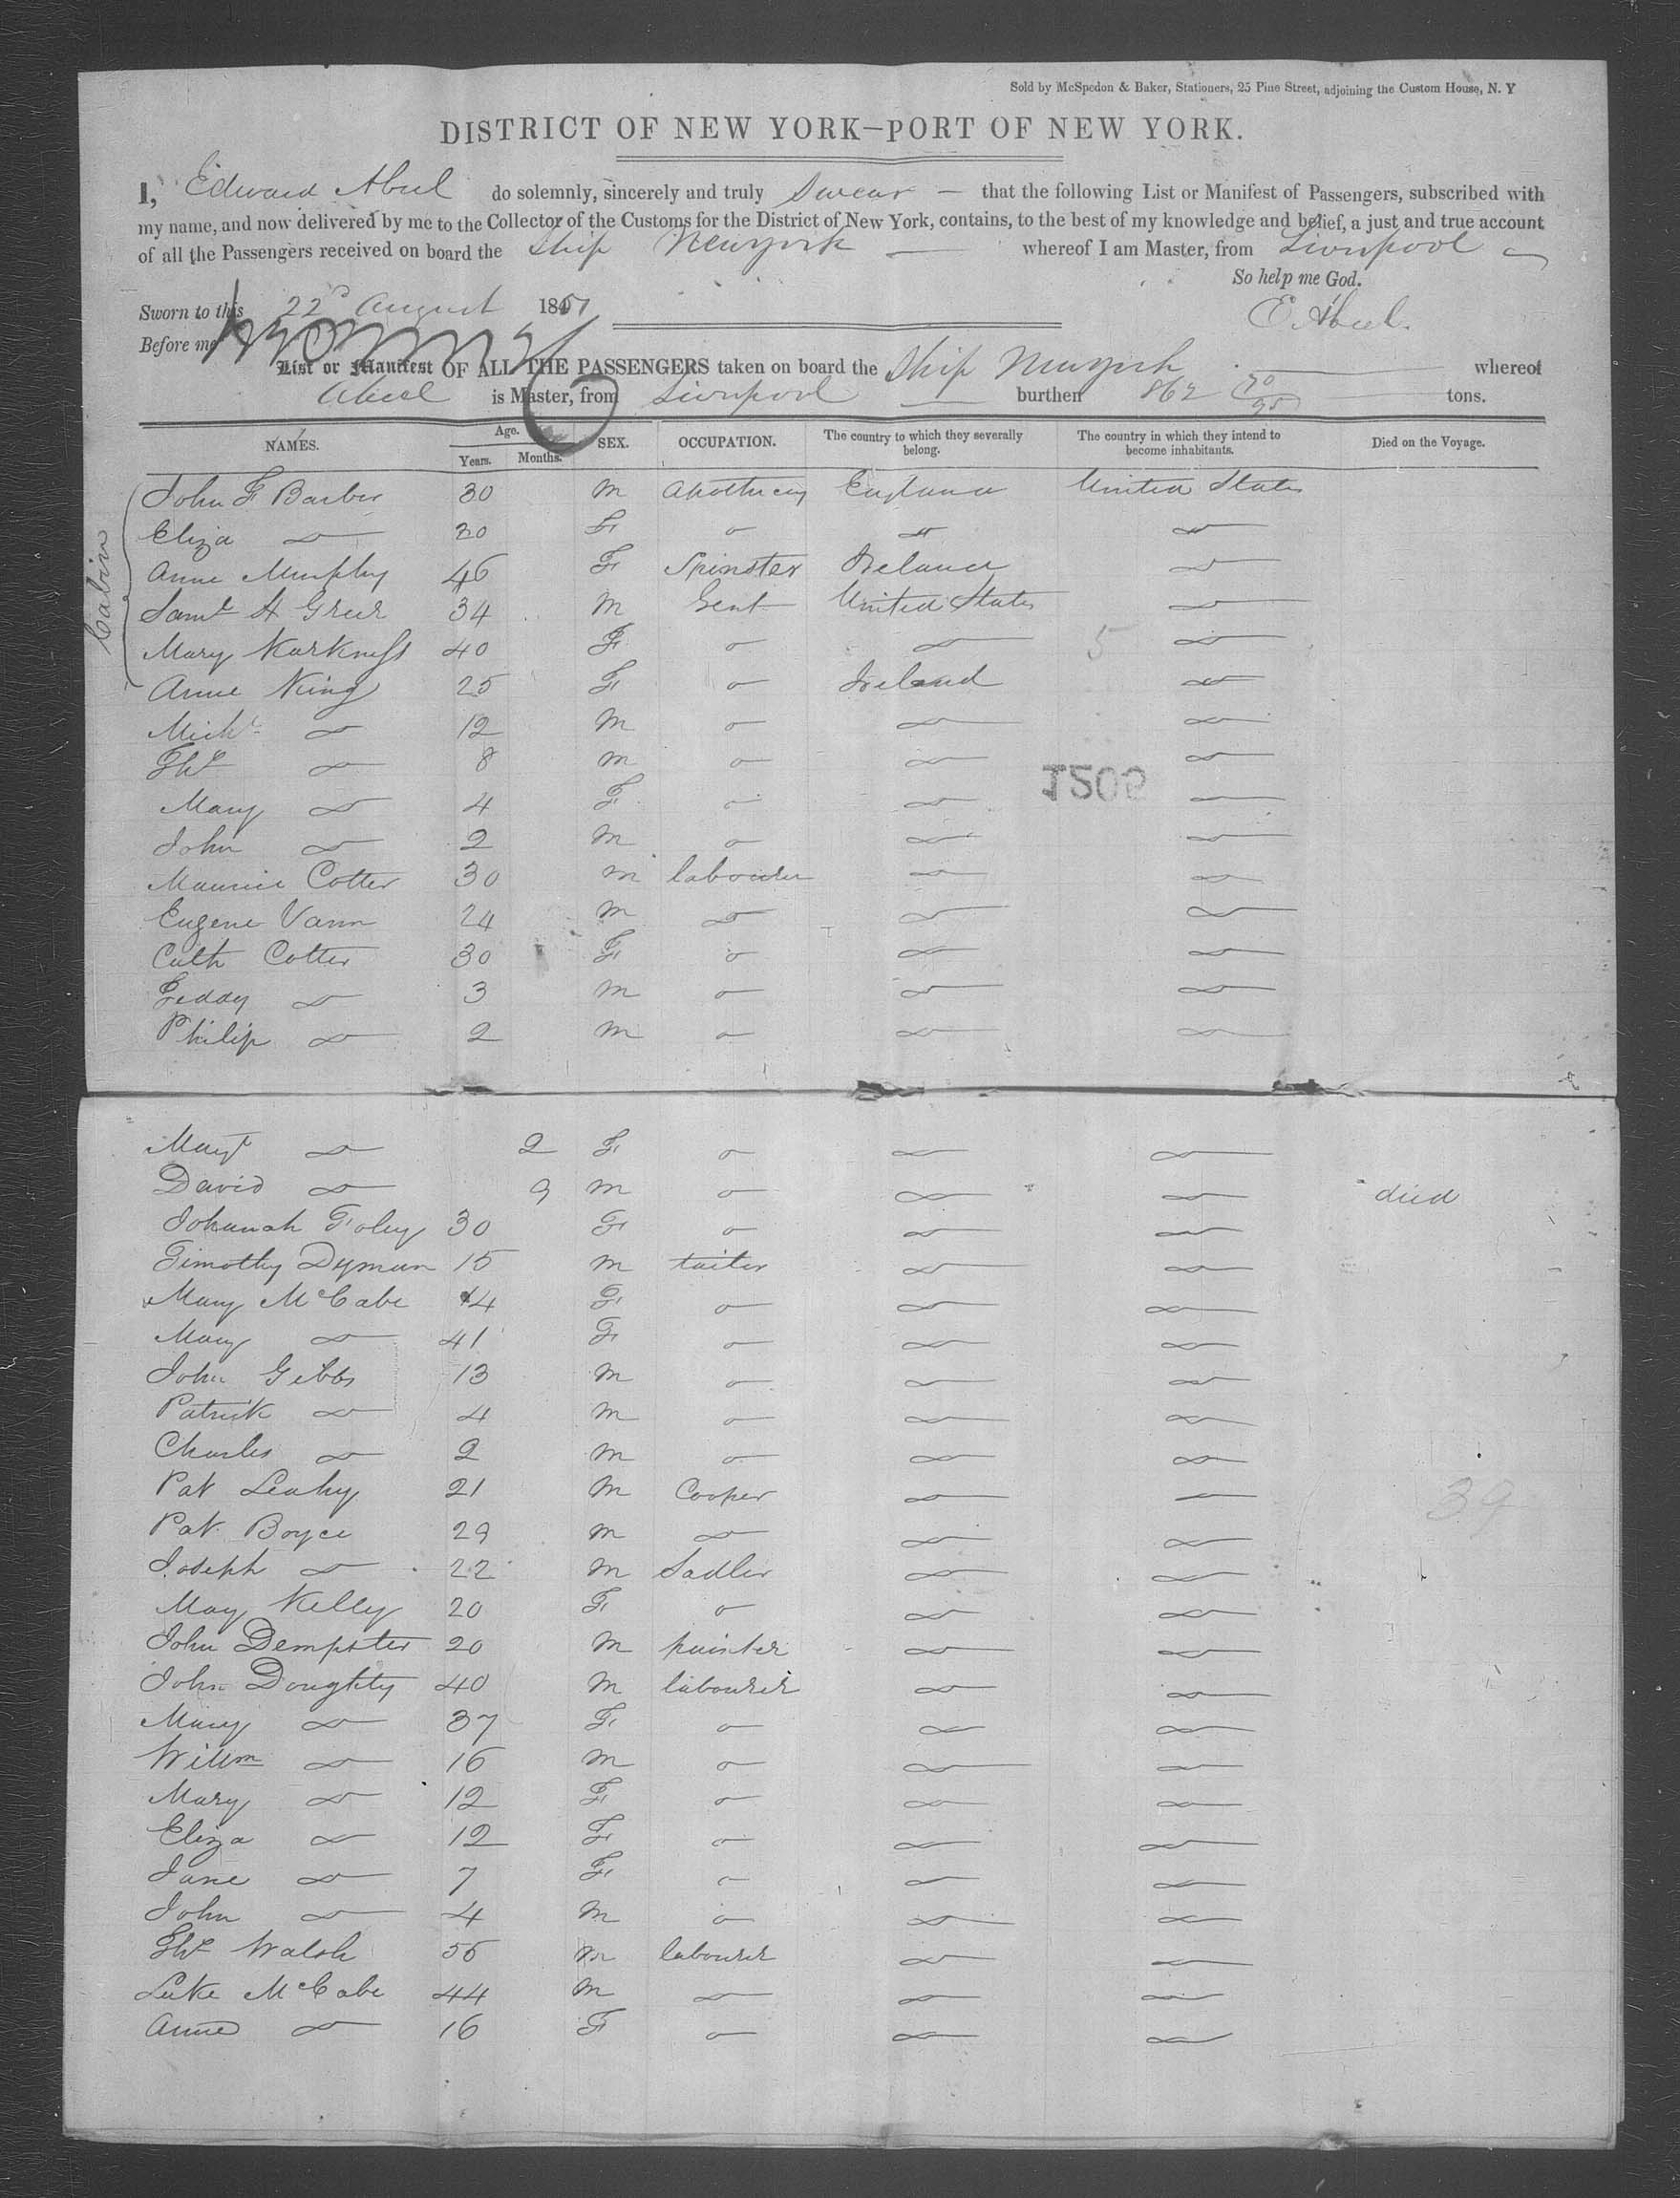 Sold by McSpedon & Baker, Stationers, 25 Pine Street, adjoining the Custom House, N. Y
DISTRICT OF NEW YORK—PORT OF NEW YORK.
I, Edward Abeel do solemnly, sincerely and truly Swear — that the following List or Manifest of Passengers, subscribed with
my name, and now delivered by me to the Collector of the Customs for the District of New York, contains, to the best of my knowledge and belief, a just and true account
of all the Passengers received on board the Ship Newyork — whereof I am Master, from Liverpool
So help me God.
Sworn to this 22d August 1851
E Abeel
Before me
List or Manifest OF ALL THE PASSENGERS taken on board the Ship Newyork whereof
Abeel is Master, from Liverpool — burthen 862 70/95 tons.
NAMES. Age. Years. Months. SEX. OCCUPATION. The country to which they severally belong. The country in which they intend to become inhabitants. Died on the Voyage.
Cabin
John F Barber 30 M Apothecary England United States
Eliza do 30 F do do
Anne Murphy 46 F Spinster Ireland do
Saml A Greer 34 M Gent United States do
Mary Harkness 40 F do do
5
Anne King 25 F Ireland do
Michl do 12 M do do
Ths do 8 M do do
1509
Mary do 4 F do do
John do 2 M do do
Maurice Cotter 30 M labourer do do
Eugene Vann 24 M do do do
Cath Cotter 30 F do do
Teddy do 3 M do do
Philip do 2 M do do
Margt do 2 F do do
David do 9 M do do died
Johanah Foley 30 F do do
Timothy Dyman 15 M tailor do do
Mary McCabe 14 F do do
Mary do 41 F do do
John Gibbs 13 M do do
Patrick do 4 M do do
Charles do 2 M do do
Pat Leahy 21 M Cooper do do
39
Pat Boyce 29 M do do do
Joseph do 22 M Sadler do do
May Kelly 20 F do do
John Dempster 20 M painter do do
John Doughty 40 M labourer do do
Mary do 37 F do do
Willm do 16 M do do
Mary do 12 F do do
Eliza do 12 F do do
Jane do 7 F do do
John do 4 M do do
Ths Walsh 56 M labourer do do
Luke McCabe 44 M do do do
Anne do 16 F do do